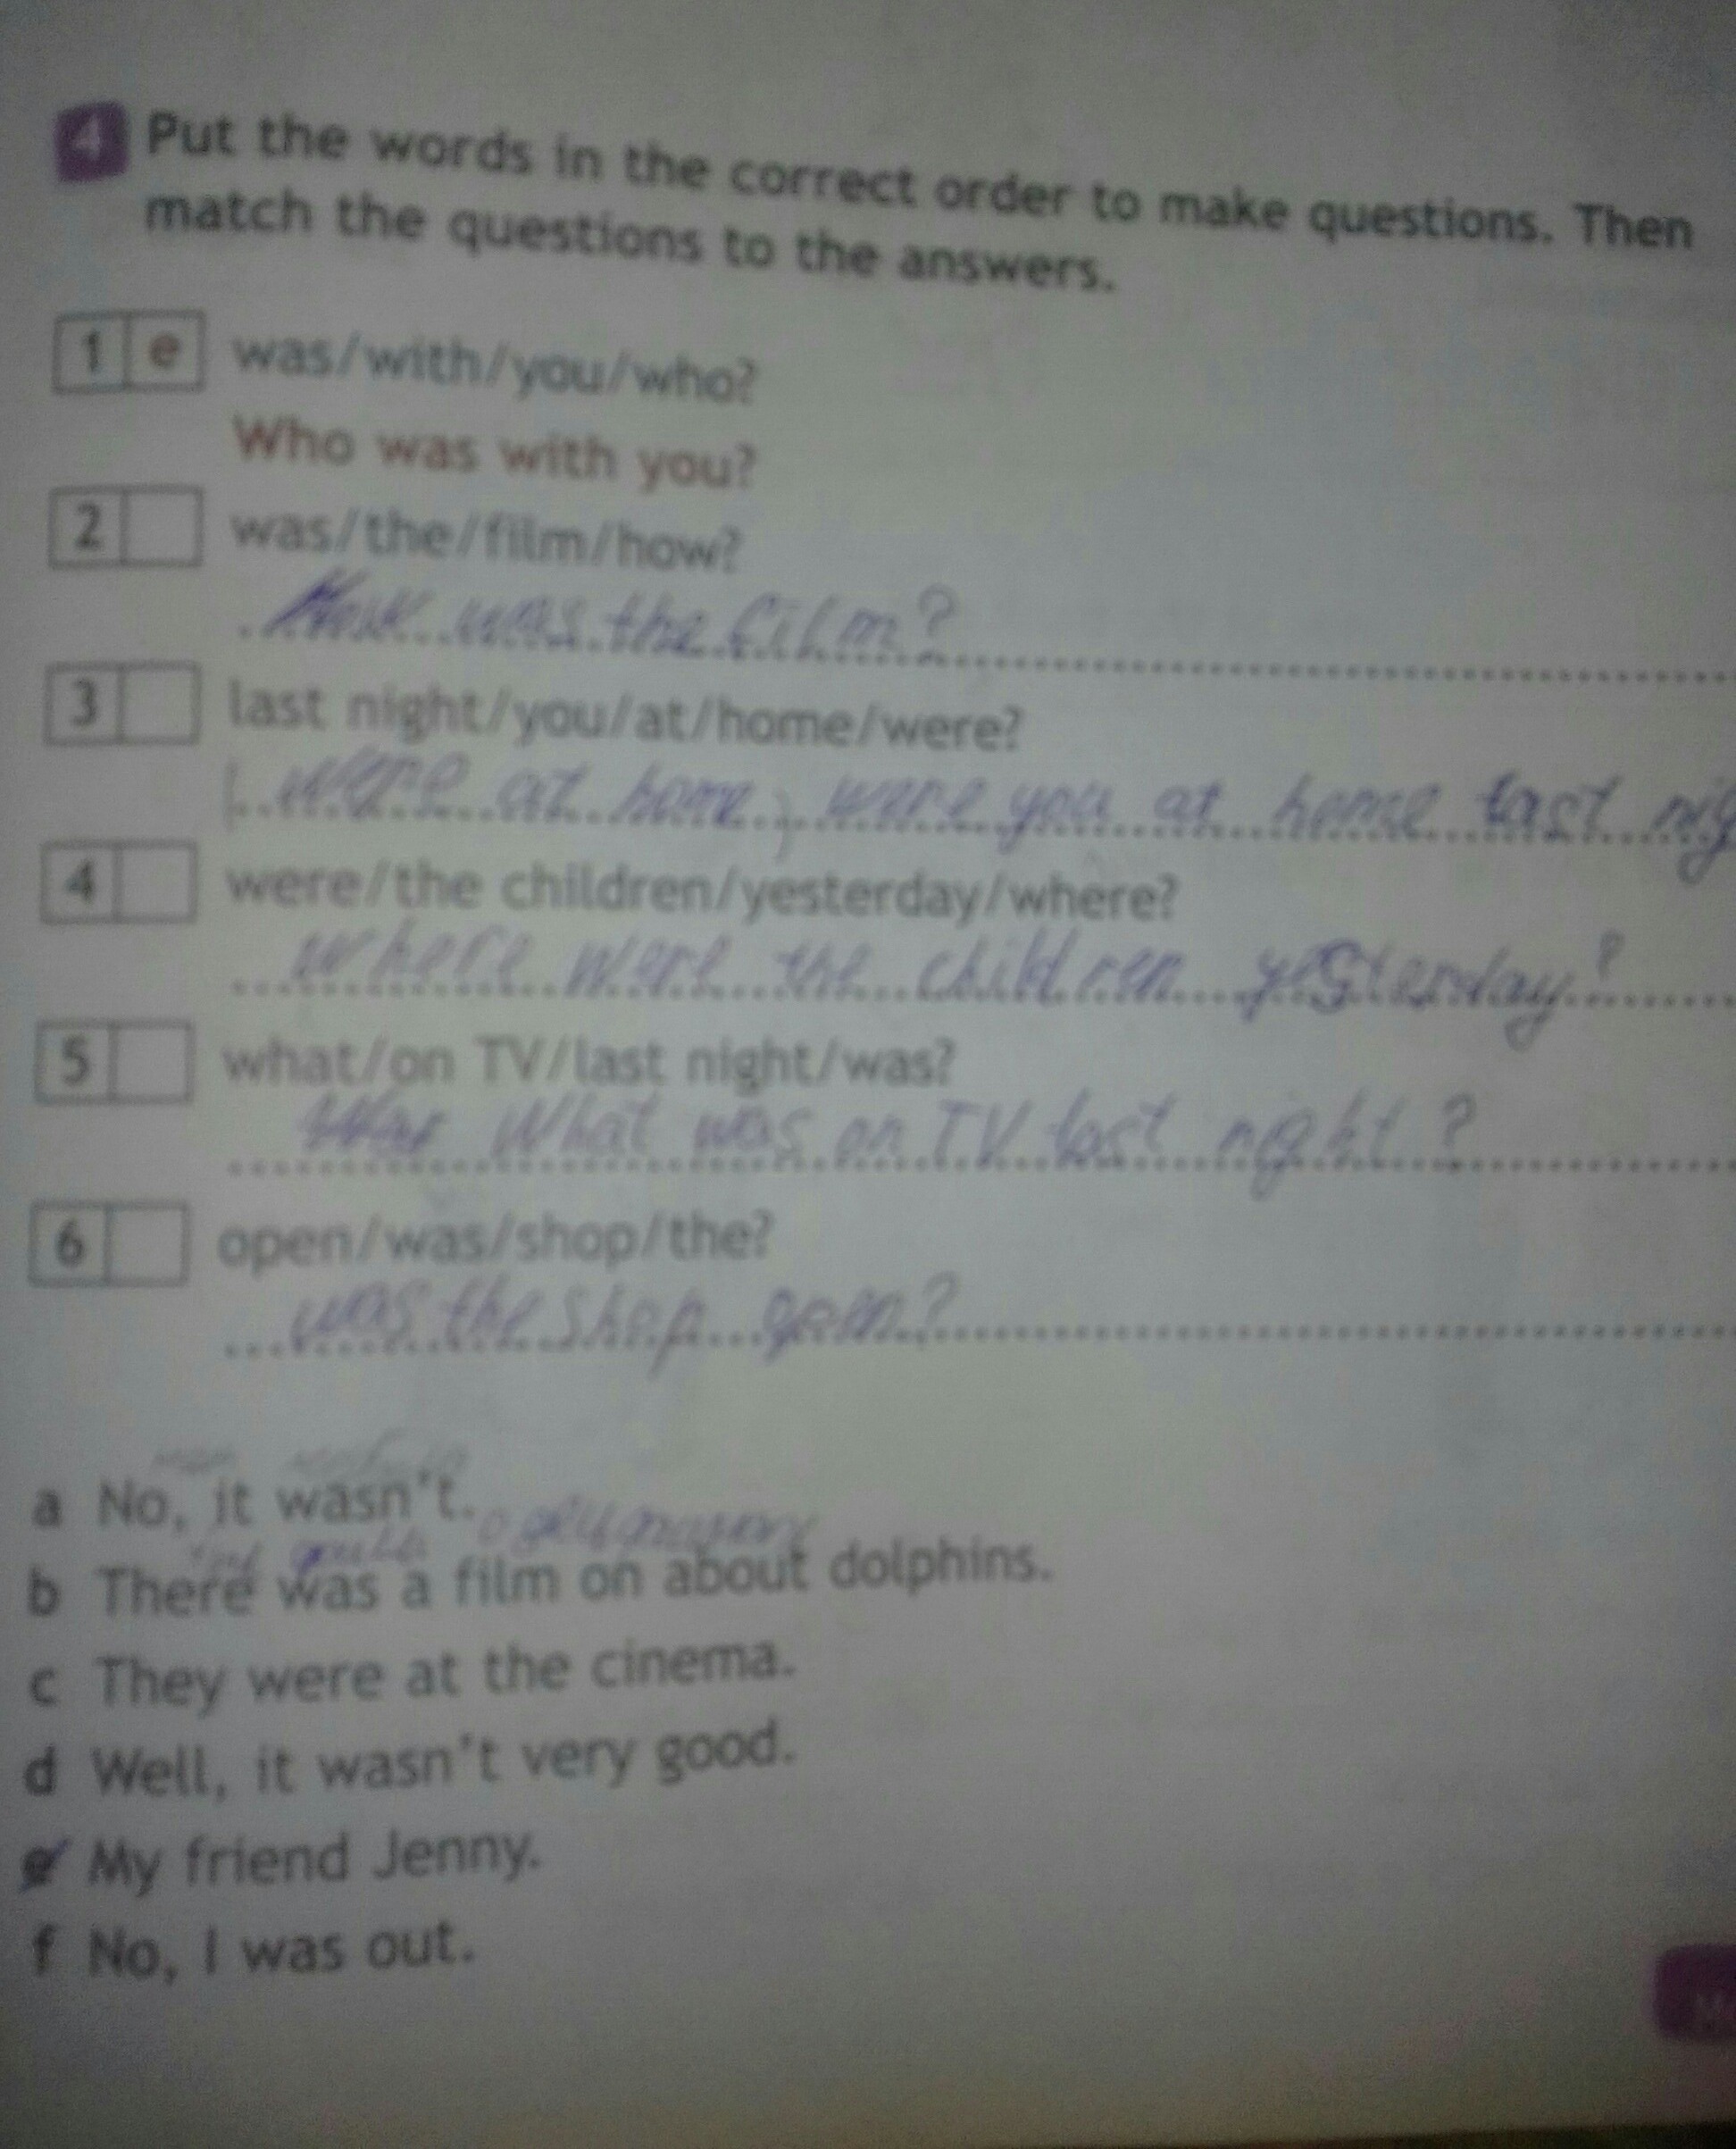 4 Put the words in the correct order to make questions. Then
match the questions to the answers.
1 e was/with/you/who?
Who was with you?
2 was/the/film/how?
How was the film?
3 last night/you/at/home/were?
were at home, were you at home last nig
4 were/the children/yesterday/where?
where were the children yesterday?
5 what/on TV/last night/was?
What was on TV last night?
6 open/was/shop/the?
was the shop open?
a No, it wasn't.
о дельфинах
b There was a film on about dolphins.
c They were at the cinema.
d Well, it wasn't very good.
e My friend Jenny.
f No, I was out.